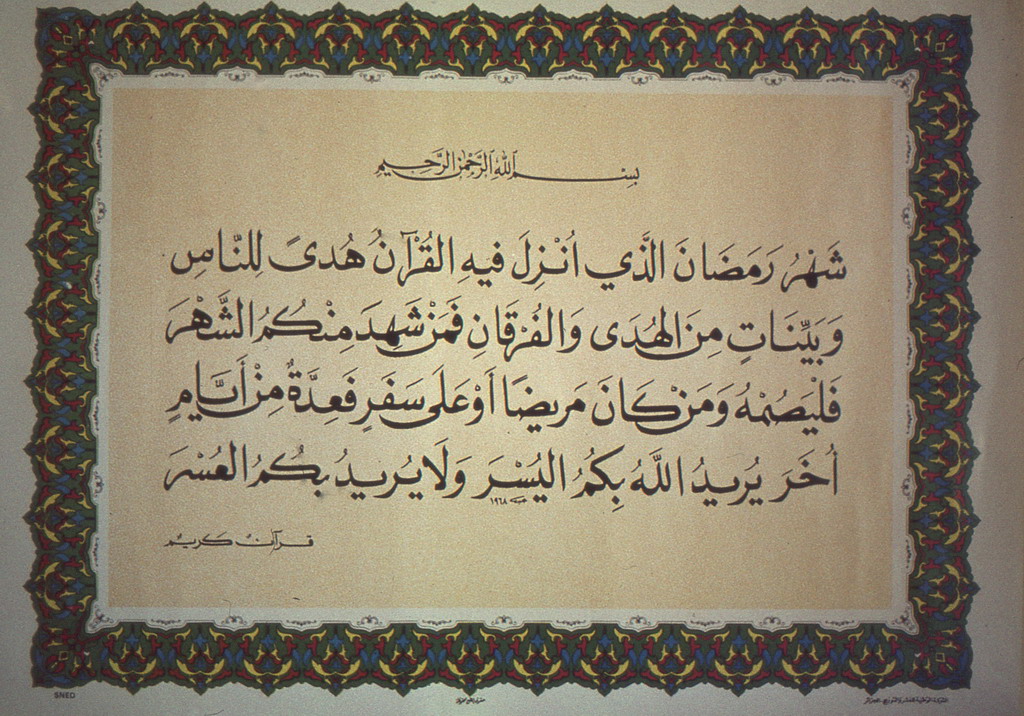 بِسْمِ اللّٰهِ الرَّحْمٰنِ الرَّحِيمِ
شَهْرُ رَمَضَانَ الَّذِي أُنْزِلَ فِيهِ القُرْآنُ هُدىً لِلنَّاسِ
وَبَيِّنَاتٍ مِنَ الهُدَى وَالفُرْقَانِ فَمَنْ شَهِدَ مِنْكُمُ الشَّهْرَ
فَلْيَصُمْهُ وَمَنْ كَانَ مَرِيضًا أَوْ عَلَى سَفَرٍ فَعِدَّةٌ مِنْ أَيَّامٍ
أُخَرَ يُرِيدُ اللَّهُ بِكُمُ اليُسْرَ وَلَا يُرِيدُ بِكُمُ العُسْرَ
١٩٦٨
قرآن كريم
SNED